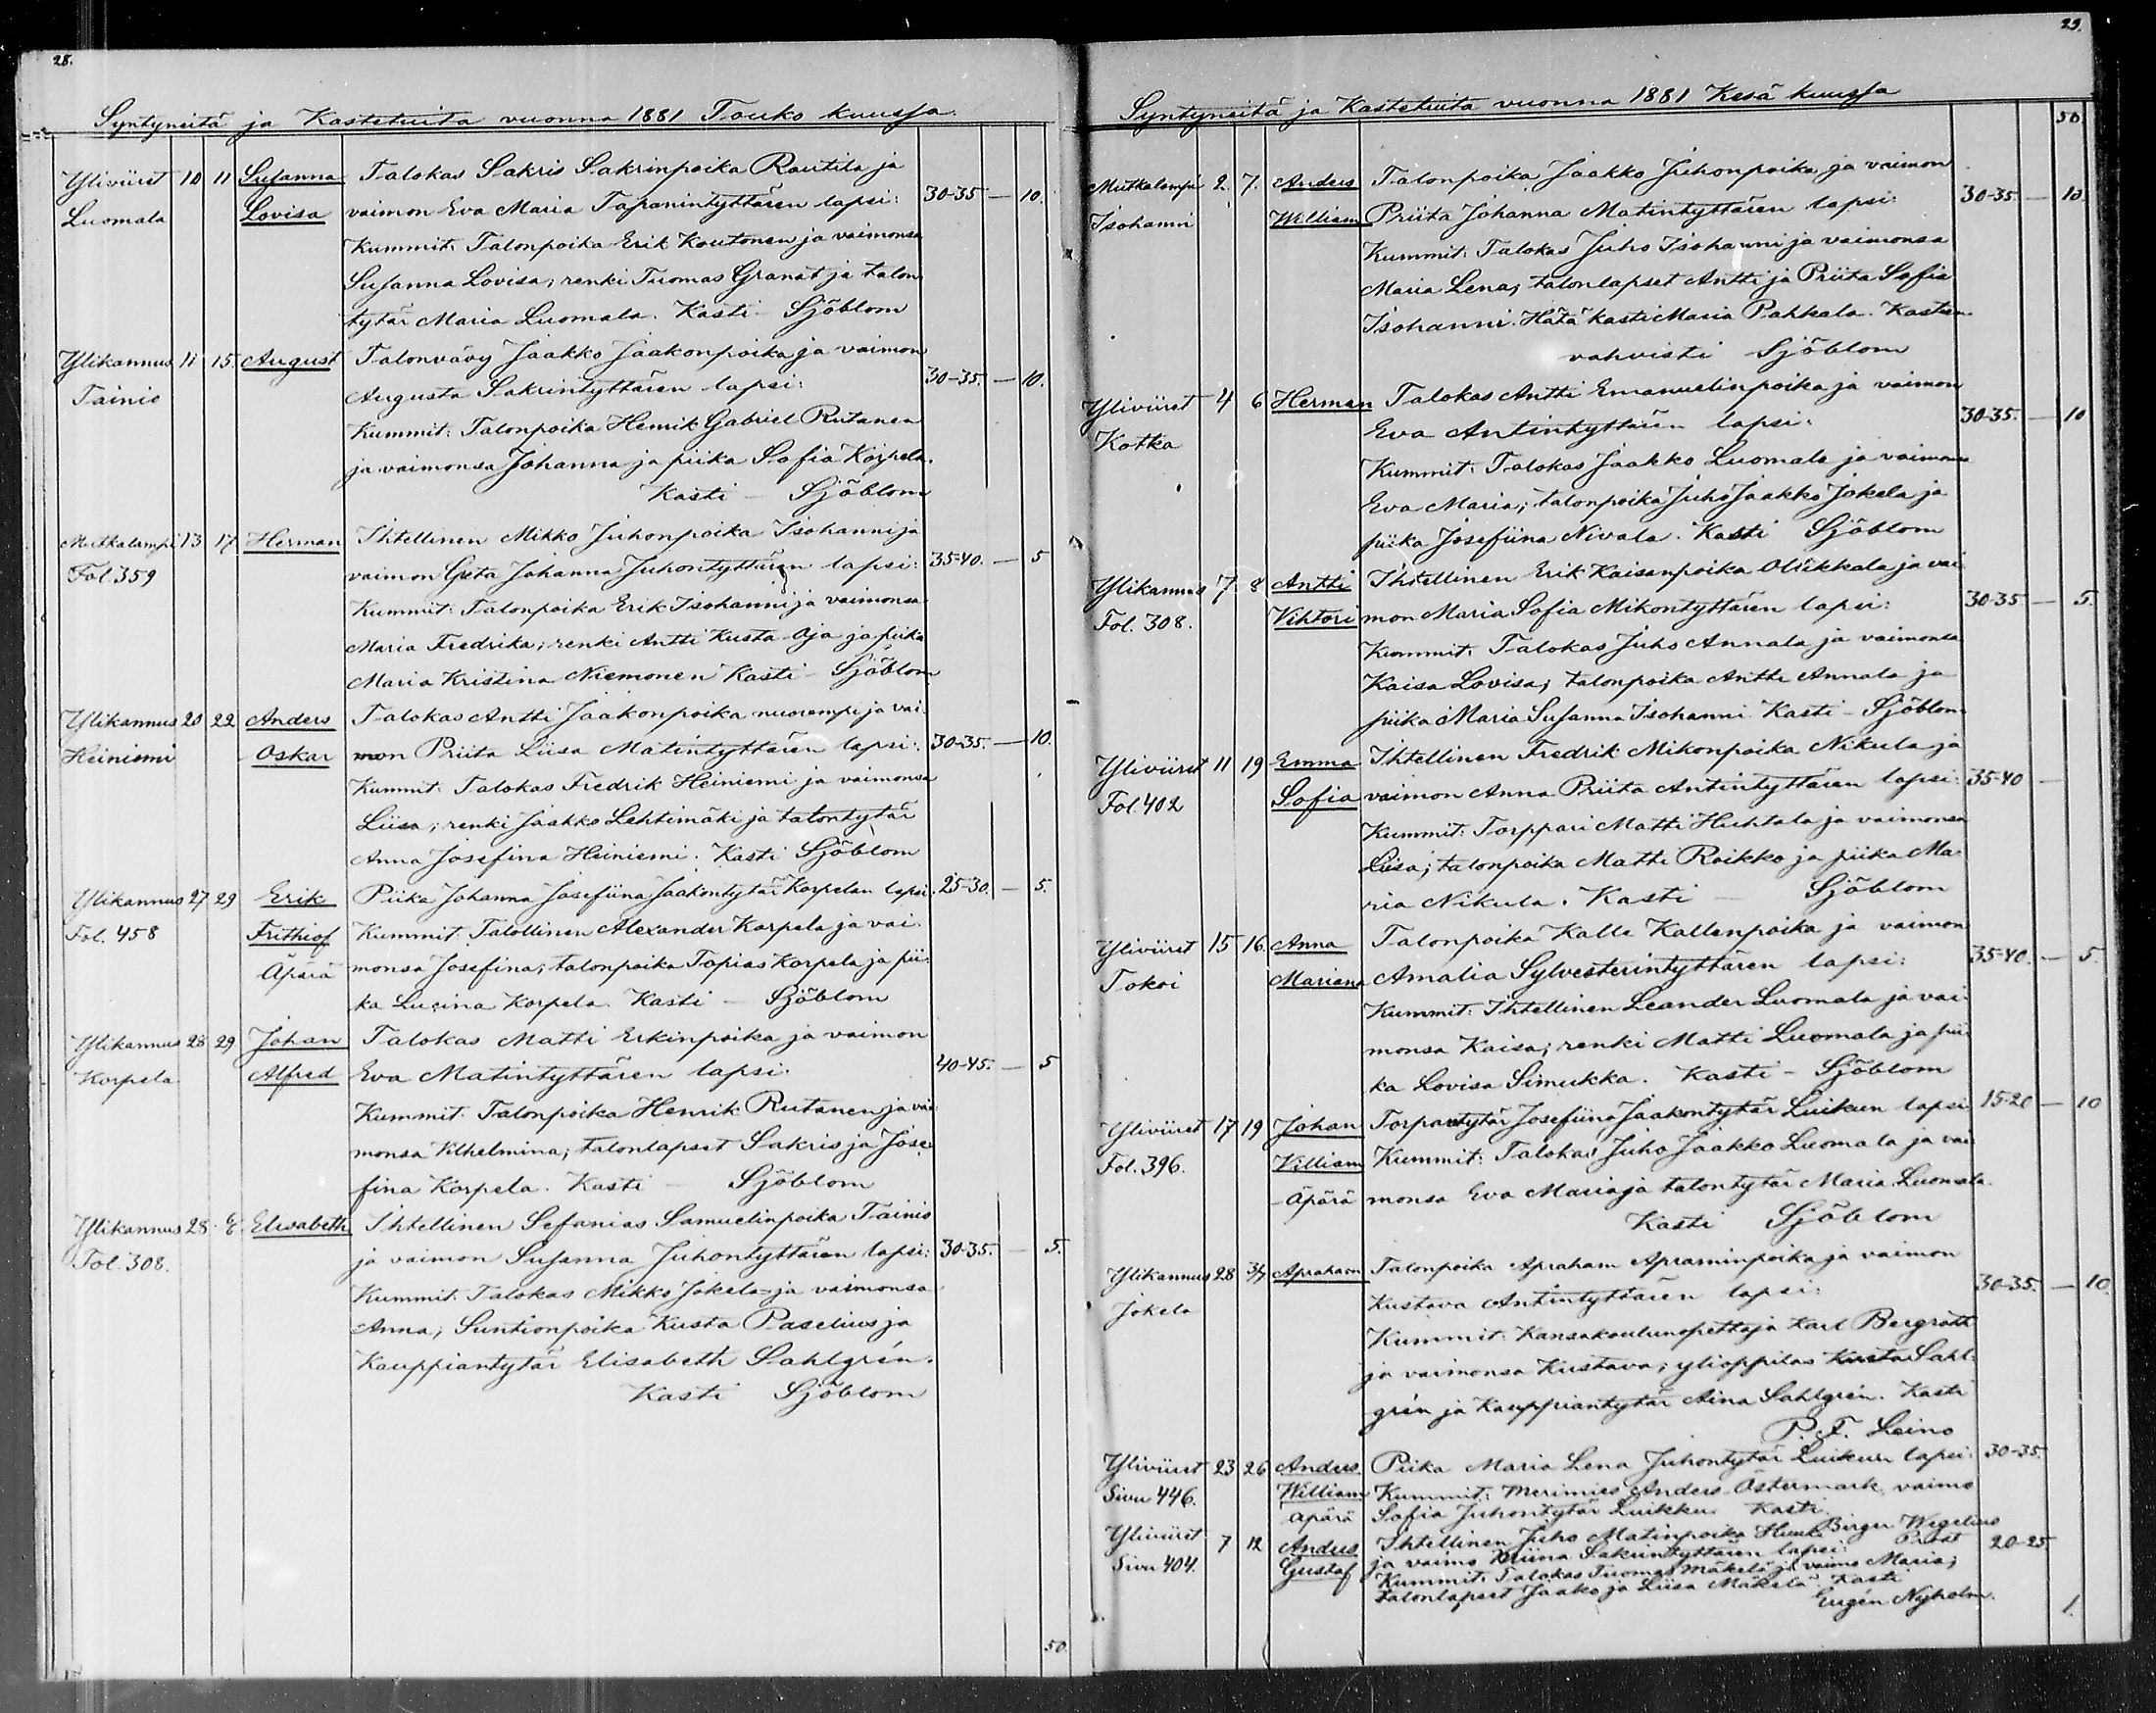 28.
Syntyneitä ja Kastetuita vuonna 1881 Touko kuussa
Yliviiret 10 11 Susanna Talokas Sakris Sakrinpoika Rautila ja
Luomala Lovisa vaimon Eva Maria Tapanintyttären lapsi: 30-35 — 10.
Kummit: Talonpoika Erik Koutonen ja vaimonsa
Susanna Lovisa; renki Tuomas Granat ja talon
tytär Maria Luomala. Kasti - Sjöblom
Ylikannus 11 15. August Talonvävy Jaakko Jaakonpoika ja vaimon
Tainio Augusta Sakrintyttären lapsi: 30-35. — 10.
Kummit: Talonpoika Henrik Gabriel Rutanen
ja vaimonsa Johanna ja piika Sofia Korpela.
Kasti - Sjöblom
Mutkalampi 13 17 Herman Ihtellinen Mikko Juhonpoika Isohanni ja
Fol. 359 vaimon Greta Johanna Juhontyttären lapsi: 35-40. — 5
Kummit: Talonpoika Erik Isohanni ja vaimonsa
Maria Fredrika; renki Antti Kusta Oja ja piika
Maria Kristina Niemonen Kasti - Sjöblom
Ylikannus 20 22 Anders Talokas Antti Jaakonpoika nuorempi ja vai
Heiniemi Oskar mon Priita Liisa Matintyttären lapsi: 30-35. — 10.
Kummit: Talokas Fredrik Heiniemi ja vaimonsa
Liisa; renki Jaakko Lehtimäki ja talontytär
Anna Josefina Heiniemi. Kasti Sjöblom
Ylikannus 27 29 Erik Piika Johanna Josefiina Jaakontytär Korpelan lapsi. 25-30. — 5.
Fol. 458 Frithiof Kummit: Talollinen Alexander Korpela ja vai
Äpärä monsa Josefina; talonpoika Topias Korpela ja pii:
ka Lucina Korpela. Kasti - Sjöblom
Ylikannus 28 29 Johan Talokas Matti Erkinpoika ja vaimon
Korpela Alfred Eva Matintyttären lapsi: 40-45. — 5
Kummit: Talonpoika Henrik Rutanen ja vai
monsa Vilhelmina; talonlapset Sakris ja Jose:
fina Korpela. Kasti - Sjöblom
Ylikannus 28 Elisabeth Ihtellinen Sefanias Samuelinpoika Tainio
Fol. 308. ja vaimon Susanna Juhontyttären lapsi: 30-35. — 5.
Kummit: Talokas Mikko Jokela ja vaimonsa
Anna; Suntionpoika Kusta Paselius ja
Kauppiantytär Elisabeth Sahlgrén.
Kasti Sjöblom
50
29.
Syntyneitä ja Kastetuita vuonna 1881 Kesä kuussa
50.
Mutkalampi 2. 7. Anders Talonpoika Jaakko Juhonpoika ja vaimon
Isohanni William Priita Johanna Matintyttären lapsi: 30-35. — 10.
Kummit: Talokas Juho Isohanni ja vaimonsa
Maria Lena; talonlapset Antti ja Priita Sofia
Isohanni. Hätä kasti Maria Pahkala. Kasteen
vahvisti Sjöblom
Yliviiret 4 6 Herman Talokas Antti Emanuelinpoika ja vaimon
Kotka Eva Antintyttären lapsi: 30-35. — 10
Kummit: Talokas Jaakko Luomala ja vaimonsa
Eva Maria; talonpoika Juho Jaakko Jokela ja
piika Josefiina Nivala. Kasti Sjöblom
Ylikannus 7 8 Antti Ihtellinen Erik Kaisanpoika Ollikkala ja vai
Fol. 308. Vihtori mon Maria Sofia Mikontyttären lapsi: 30-35 — 5.
Kummit: Talokas Juho Annala ja vaimonsa
Kaisa Lovisa; talonpoika Antti Annala ja
piika Maria Susanna Isohanni. Kasti - Sjöblom
Yliviiret 11 19 Emma Ihtellinen Fredrik Mikonpoika Nikula ja
Fol. 402 Sofia vaimon Anna Priita Antintyttären lapsi: 35-40 —
Kummit: Torppari Matti Huhtala ja vaimonsa
Liisa; talonpoika Matti Roikko ja piika Ma
ria Nikula. Kasti - Sjöblom
Yliviiret 15 16. Anna Talonpoika Kalle Kallenpoika ja vaimon
Tokoi Mariana Amalia Sylvesterintyttären lapsi: 35-40. — 5.
Kummit: Ihtellinen Leander Luomala ja vai
monsa Kaisa; renki Matti Luomala ja pii
ka Lovisa Simukka. Kasti - Sjöblom
Yliviiret 17 19 Johan Torpantytär Josefiina Jaakontytär Luikun lapsi 15-20 — 10
Fol. 396. Villiam Kummit: Talokas Juho Jaakko Luomala ja vai
Äpärä monsa Eva Maria ja talontytär Maria Luomala.
Kasti Sjöblom
Ylikannus 28 3/7 Apraham Talonpoika Apraham Apraminpoika ja vaimon
Jokela Kustava Antintyttären lapsi: 30-35. — 10.
Kummit: Kansakoulunopettaja Karl Bergroth
ja vaimonsa Kustava; ylioppilas Kusta Sahl
grén ja Kauppiantytär Aina Sahlgrén. Kasti
P. F. Leino
Yliviiret 23 26 Anders Piika Maria Lena Juhontytär Luikun lapsi: 30-35.
Sivu 446. William Kummit: Merimies Anders Östermark vaimo
äpärä Sofia Juhontytär Luikku Kasti
Birger Wegelius
Yliviiret 7 12 Anders Ihtellinen Juho Matinpoika 20-25.
Sivu 404. Gustaf ja vaimo Sakrintyttären lapsi:
Kummit: Talokas Tuomas Mäkelä ja vaimo Maria;
talonlapset Jaako ja Liisa Mäkelä. Kasti
Eugén Nyholm.
1.